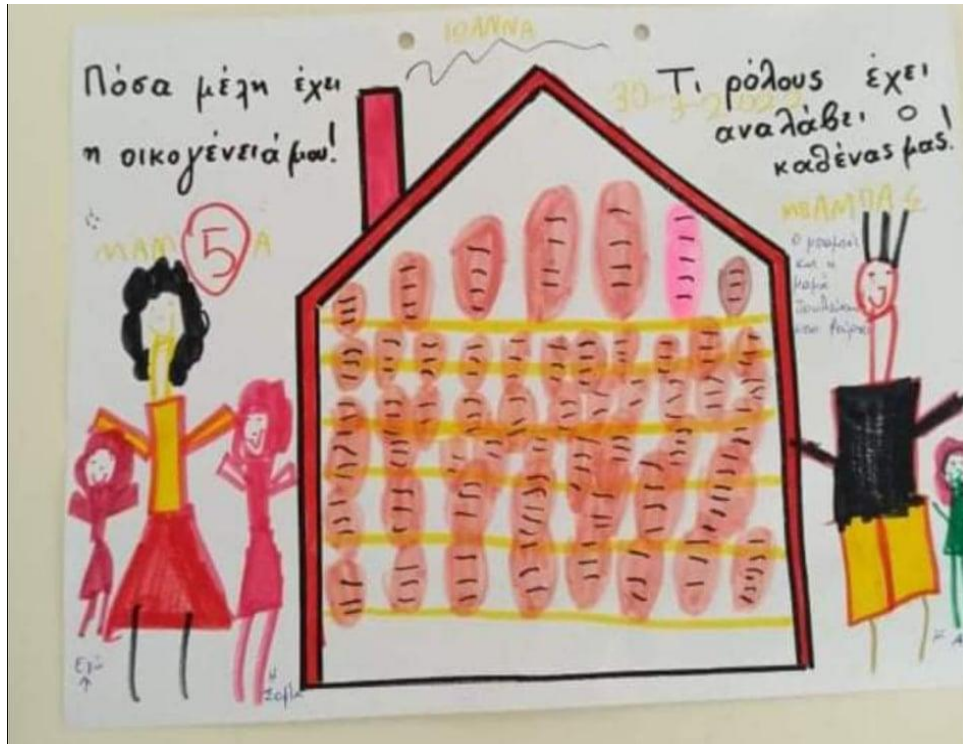 ΙΩΑΝΝΑ
Πόσα μέλη έχει
η οικογένειά μου!
Τι ρόλους έχει
αναλάβει ο
καθένας μας!
30-3-2022
ΜΑΜ Α
5
ΜΠΑΜΠΑΣ
Ο μπαμπάς
και η
μαμά
δουλεύουν
στο
Εγώ
Η
Σοφία